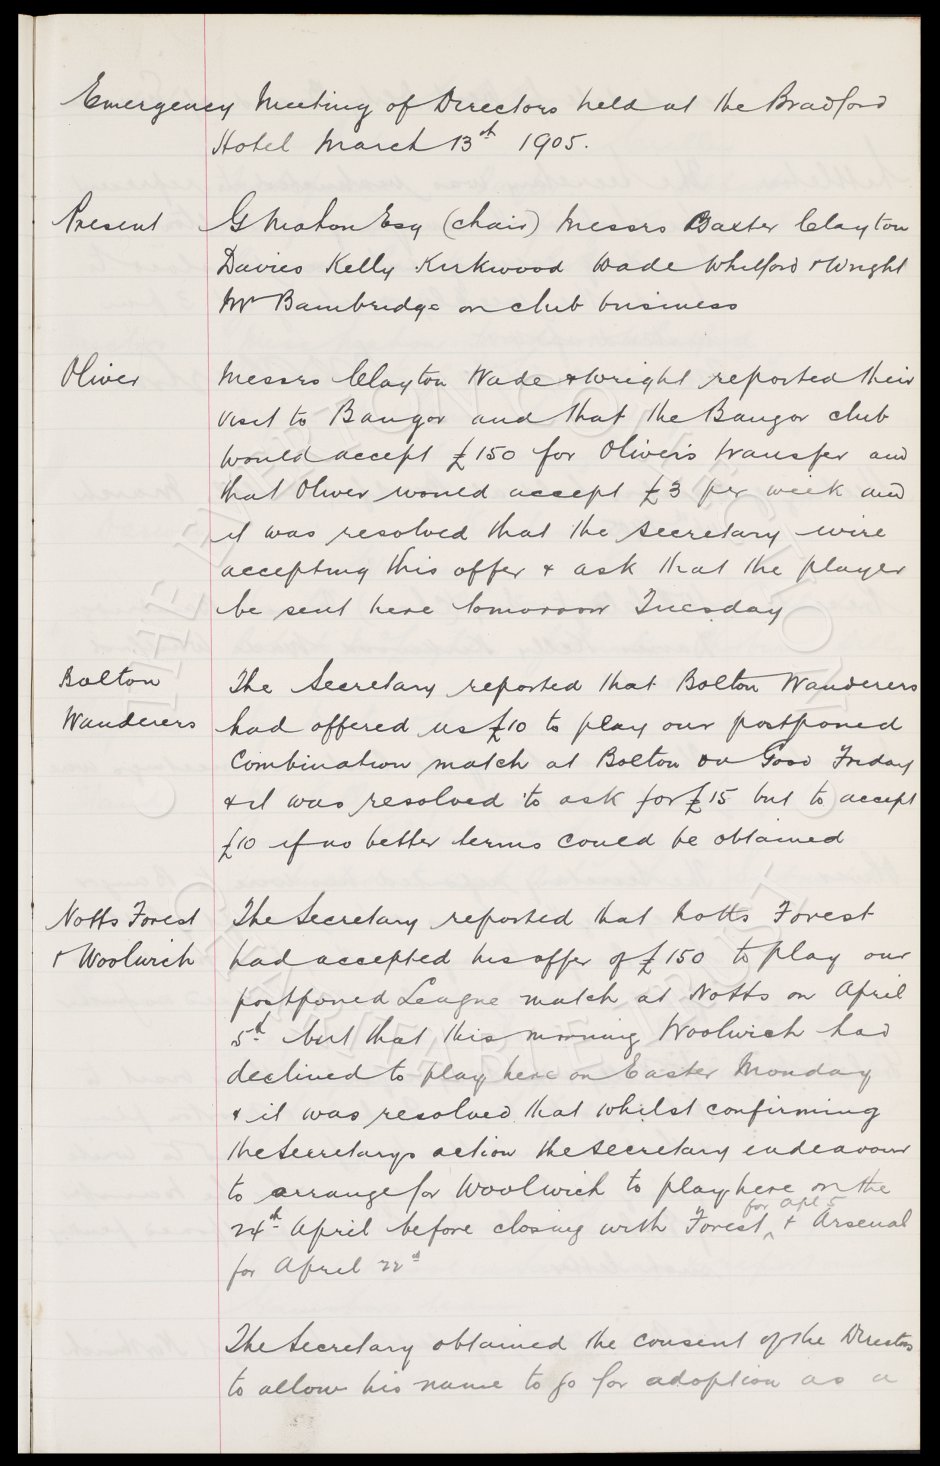 Emergency Meeting of Directors held at the Bradford
Hotel March 13th 1905.
Present G Mahon Esq (chair) Messrs Baxter Clayton
Davies Kelly Kirkwood Wade Whitford & Wright
Mr Bainbridge on club business
Oliver Messrs Clayton Wade & Wright reported their
visit to Bangor and that the Bangor club
would accept £150 for Olivers transfer and
that Oliver would accept £3 per week and
it was resolved that the Secretary wire
accepting this offer & ask that the player
be sent here tomorrow Tuesday
Bolton The Secretary reported that Bolton Wanderers
Wanderers had offered us £10 to play our postponed
Combination match at Bolton on Good Friday
& it was resolved to ask for £15 but to accept
£10 if no better terms could be obtained
Notts Forest The Secretary reported that Notts Forest
& Woolwich had accepted his offer of £150 to play our
postponed League match at Notts on April
5th but that this morning Woolwich had
declined to play here on Easter Monday
& it was resolved that whilst confirming
the Secretarys action the Secretary endeavour
to arrange for Woolwich to play here on the
24th April before closing with Forest for Apl 5 & Arsenal
for April 22nd
The Secretary obtained the consent of the Directors
to allow his name to go for adoption as a